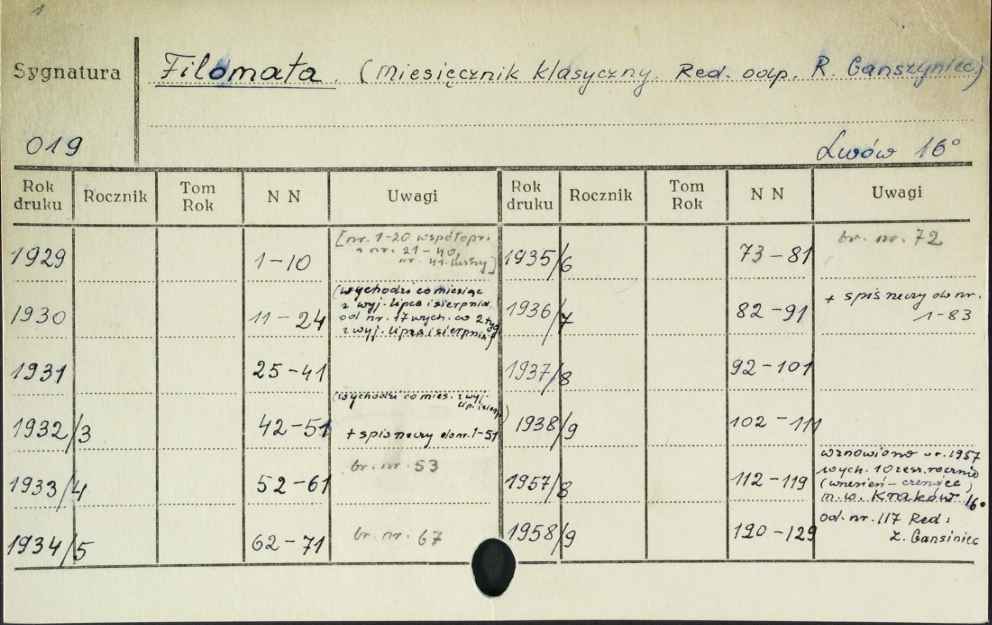 1
Sygnatura
Filomata. (Miesięcznik klasyczny. Red. odp. R. Ganszyniec)
019
Lwów 16°
Rok druku Rocznik Tom Rok N N Uwagi Rok druku Rocznik Tom Rok N N Uwagi
1929 1-10 [nr. 1-20 współopr.
z nr. 21-40,
nr. 41 luźny]
1935/6 73-81 br. nr. 72
1930 11-24 (wychodzi co miesiąc
z wyj. lipca i sierpnia
od nr. 17 wych. co 2 tyg.
z wyj. lipca i sierpnia)
1936/7 82-91 + spis rzeczy do nr.
1-83
1931 25-41
1937/8 92-101
1932/3 42-51 (wychodzi co mies. z wyj.
lip. i sierp.)
+ spis rzeczy do nr. 1-51
1938/9 102-111
1933/4 52-61 br. nr. 53
1957/8 112-119 wznowiono w r. 1957
wych. 10 zesz. rocznie
(wrzesień-czerwiec)
m. w. Kraków 16°
1934/5 62-71 br. nr. 67
1958/9 120-129 Od. nr. 117 Red:
Z. Gansiniec